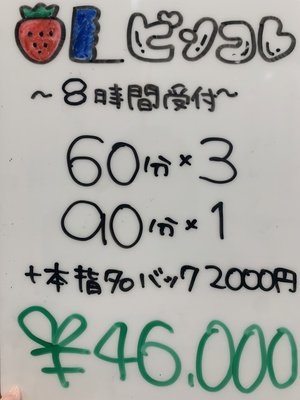 OL ビンゴル
～8時間受付～
60分×3
90分×1
+本指70バック2000円
¥46.000